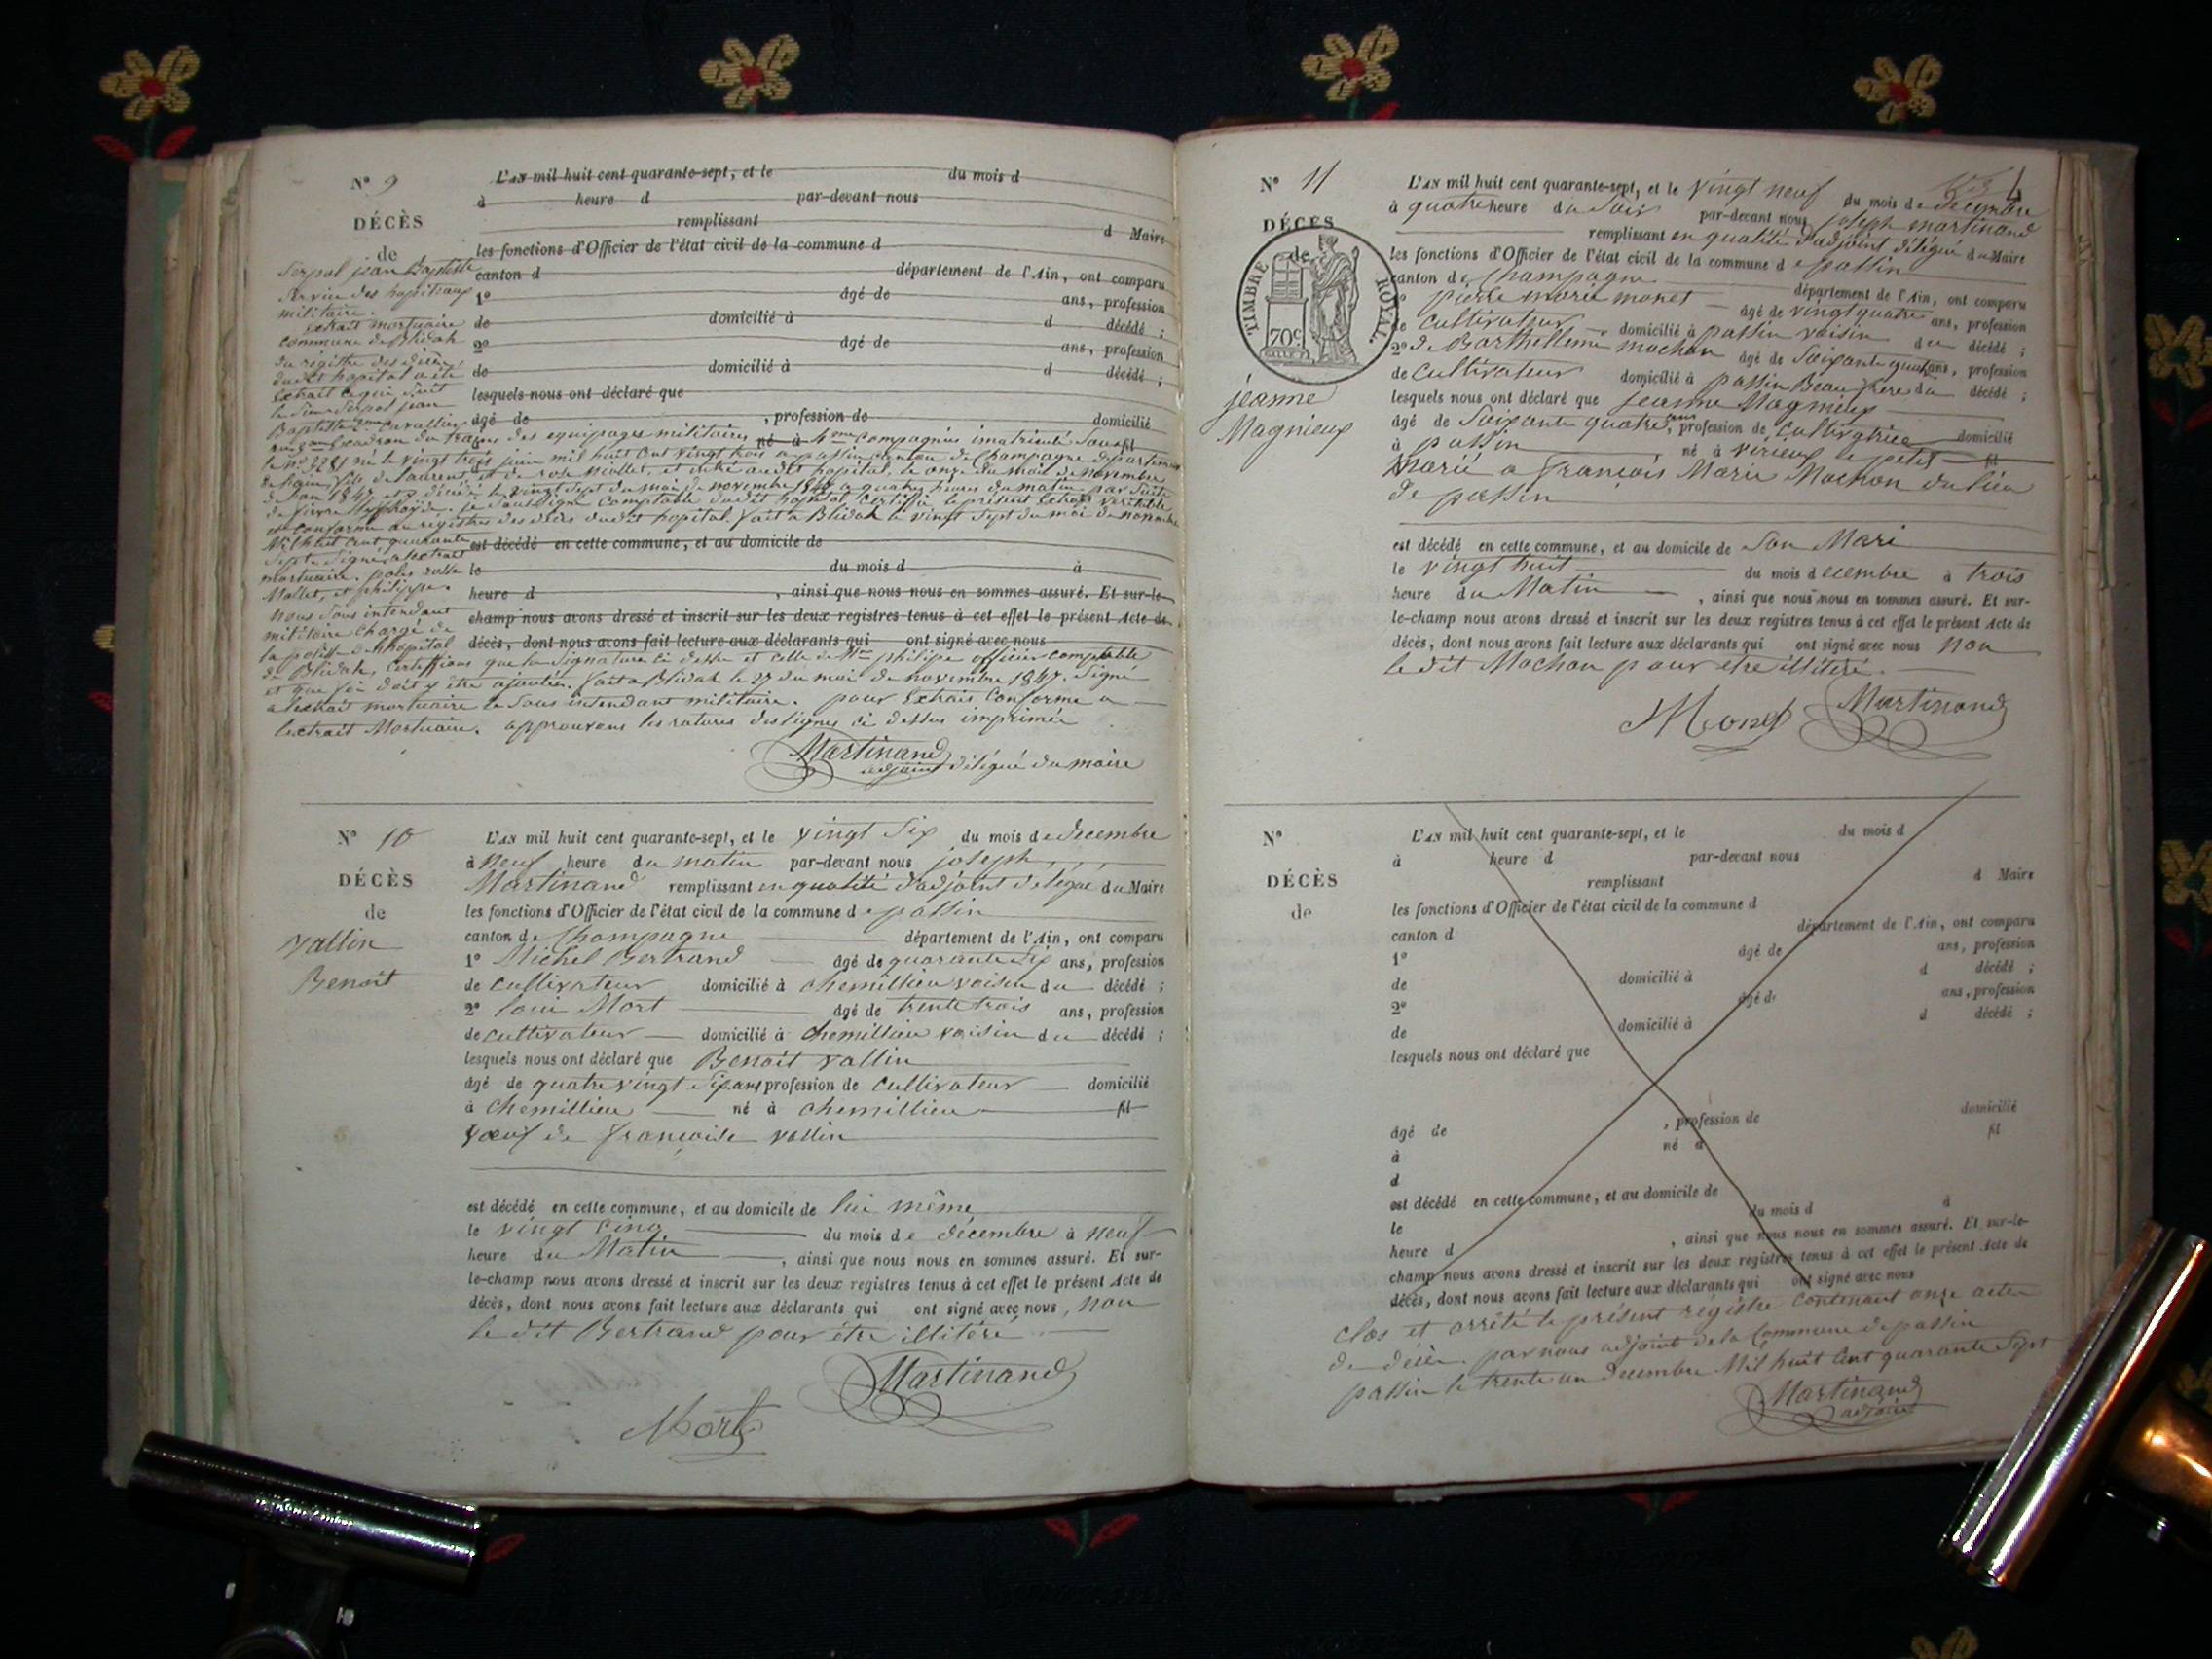 N° 9
L'AN mil huit cent quarante-sept, et le du mois d
à heure d par-devant nous
DÉCÈS
remplissant d Maire
de
les fonctions d'Officier de l'état civil de la commune d
Serpol jean Baptiste
canton d département de l'Ain, ont comparu
Service des hopitaux
1° âgé de ans, profession
militaire.
extrait mortuaire
de domicilié à d décédé ;
commune de Blidah
2° âgé de ans, profession
du registre des décès
dudit hopital a été
de domicilié à d décédé ;
extrait ce qui suit
lesquels nous ont déclaré que
le Sieur Serpol jean
Baptiste cavallier
âgé de , profession de domicilié
Escadron du train des equipages militaires né à 4me compagnies imatriculé Sous fil
le N° 3281 né le vingt trois juin mil huit Cent vingt trois a passin canton de Champagne departement
de l'ain, fils de Laurent et de rose Miollet, et entré audit hopital, le onze du mois de novembre
de l'an 1847 et y décédé le vingt Sept du mois de novembre 1847 a quatre heures du matin par Suite
de fièvre thyphoyde. je Soussigné Comptable dudit hopital Certifie le présent Extrait véritable
et conforme au registres des décès dudit hopital. fait a Blidah le vingt Sept du moi de novembre
Mil huit Cent quarante
est décédé en cette commune, et au domicile de
Sept. Signé a lextrait
mortuaire.
le du mois d à
Mallet, et philippe.
heure d , ainsi que nous nous en sommes assuré. Et sur-le-
nous Sous intendant
champ nous avons dressé et inscrit sur les deux registres tenus à cet effet le présent Acte de
militaire Chargé de
décès, dont nous avons fait lecture aux déclarants qui ont signé avec nous
la police de lhopital
de Blidah, Certiffions que la Signature ci dessu et celle de Mr philipe officier comptable
et que foi doit y être ajoutée. fait a Blidah le 27 du moi de novembre 1847. Signé
a lextrait mortuaire le Sous intendant militaire. pour Extrait Conforme a
lextrait Mortuaire. approuvons les ratures des lignes ci dessus imprimée
Martinand
adjoint délégué du maire
N° 10
L'AN mil huit cent quarante-sept, et le vingt Six du mois de decembre
à Neuf heure du matin par-devant nous joseph
DÉCÈS
Martinand remplissant en qualité d'adjoint délégué du Maire
de
les fonctions d'Officier de l'état civil de la commune de passin
Vallin
canton de Champagne département de l'Ain, ont comparu
1° Michel Bertrand âgé de quarante Six ans, profession
Benoit
de Cultivateur domicilié à Chemillieu voisin du décédé ;
2° loui Mort âgé de trente trois ans, profession
de cultivateur domicilié à Chemillieu voisin du décédé ;
lesquels nous ont déclaré que Benoit vallin
âgé de quatre vingt Six ans profession de Cultivateur domicilié
à Chemillieu né à Chemillieu fil
Vœuf de françoise vallin
est décédé en cette commune, et au domicile de lui même
le vingt cinq du mois de décembre à neuf
heure du Matin , ainsi que nous nous en sommes assuré. Et sur-
le-champ nous avons dressé et inscrit sur les deux registres tenus à cet effet le présent Acte de
décès, dont nous avons fait lecture aux déclarants qui ont signé avec nous, non
le dit Bertrand pour être illitéré
Martinand
Mort
N° 11
L'AN mil huit cent quarante-sept, et le vingt neuf du mois de decembre
à quatre heure du Soir par-devant nous joseph martinand
DÉCÈS
remplissant en qualité d'adjoint délégué du Maire
de
les fonctions d'Officier de l'état civil de la commune de passin
TIMBRE ROYAL.
70c
canton de Champagne département de l'Ain, ont comparu
1° pierre marie monet âgé de vingt quatre ans, profession
de Cultivateur domicilié à passin voisin du décédé ;
2° de Barthellemi mochon âgé de Soixante quatre ans, profession
de Cultivateur domicilié à passin Beau frere du décédé ;
jeanne
lesquels nous ont déclaré que jeanne Magnieux
Magnieux
âgé de Soixante quatre ans, profession de Cultivatrice domicilié
à passin , né à virieux le petit fil
Marié a françois Marie Mochon du lieu
de passin
est décédé en cette commune, et au domicile de Son Mari
le vingt huit du mois decembre à trois
heure du Matin , ainsi que nous nous en sommes assuré. Et sur-
le-champ nous avons dressé et inscrit sur les deux registres tenus à cet effet le présent Acte de
décès, dont nous avons fait lecture aux déclarants qui ont signé avec nous non
le dit Mochon pour etre illitéré.
Monet Martinand
N°
L'AN mil huit cent quarante-sept, et le du mois d
à heure d par-devant nous
DÉCÈS
remplissant d Maire
de
les fonctions d'Officier de l'état civil de la commune d
canton d département de l'Ain, ont comparu
1° âgé de ans, profession
de domicilié à d décédé ;
2° âgé de ans, profession
de domicilié à d décédé ;
lesquels nous ont déclaré que
âgé de , profession de domicilié
à né à fil
d
est décédé en cette commune, et au domicile de
le du mois d à
heure d , ainsi que nous nous en sommes assuré. Et sur-le-
champ nous avons dressé et inscrit sur les deux registres tenus à cet effet le présent Acte de
décès, dont nous avons fait lecture aux déclarants qui ont signé avec nous
clos et arrêté le présent régistre contenant onze actes
de décès. par nous adjoint de la Commune de passin
passin le trente un decembre Mil huit Cent quarante Sept
Martinand
adjoint